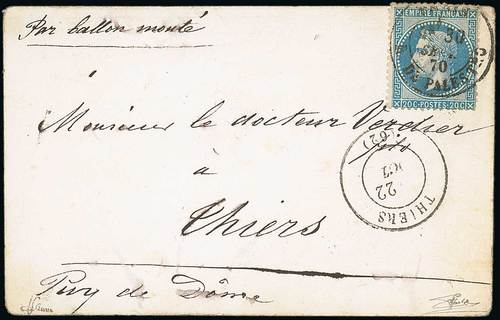 Par ballon monté
EMPIRE FRANÇAIS
30
SEPT.
70
DE PALESTRO
20 C · POSTES · 20 C
Monsieur le docteur Verdier
à
(62)
22
OCT.
THIERS
Thiers
Puy de Dôme